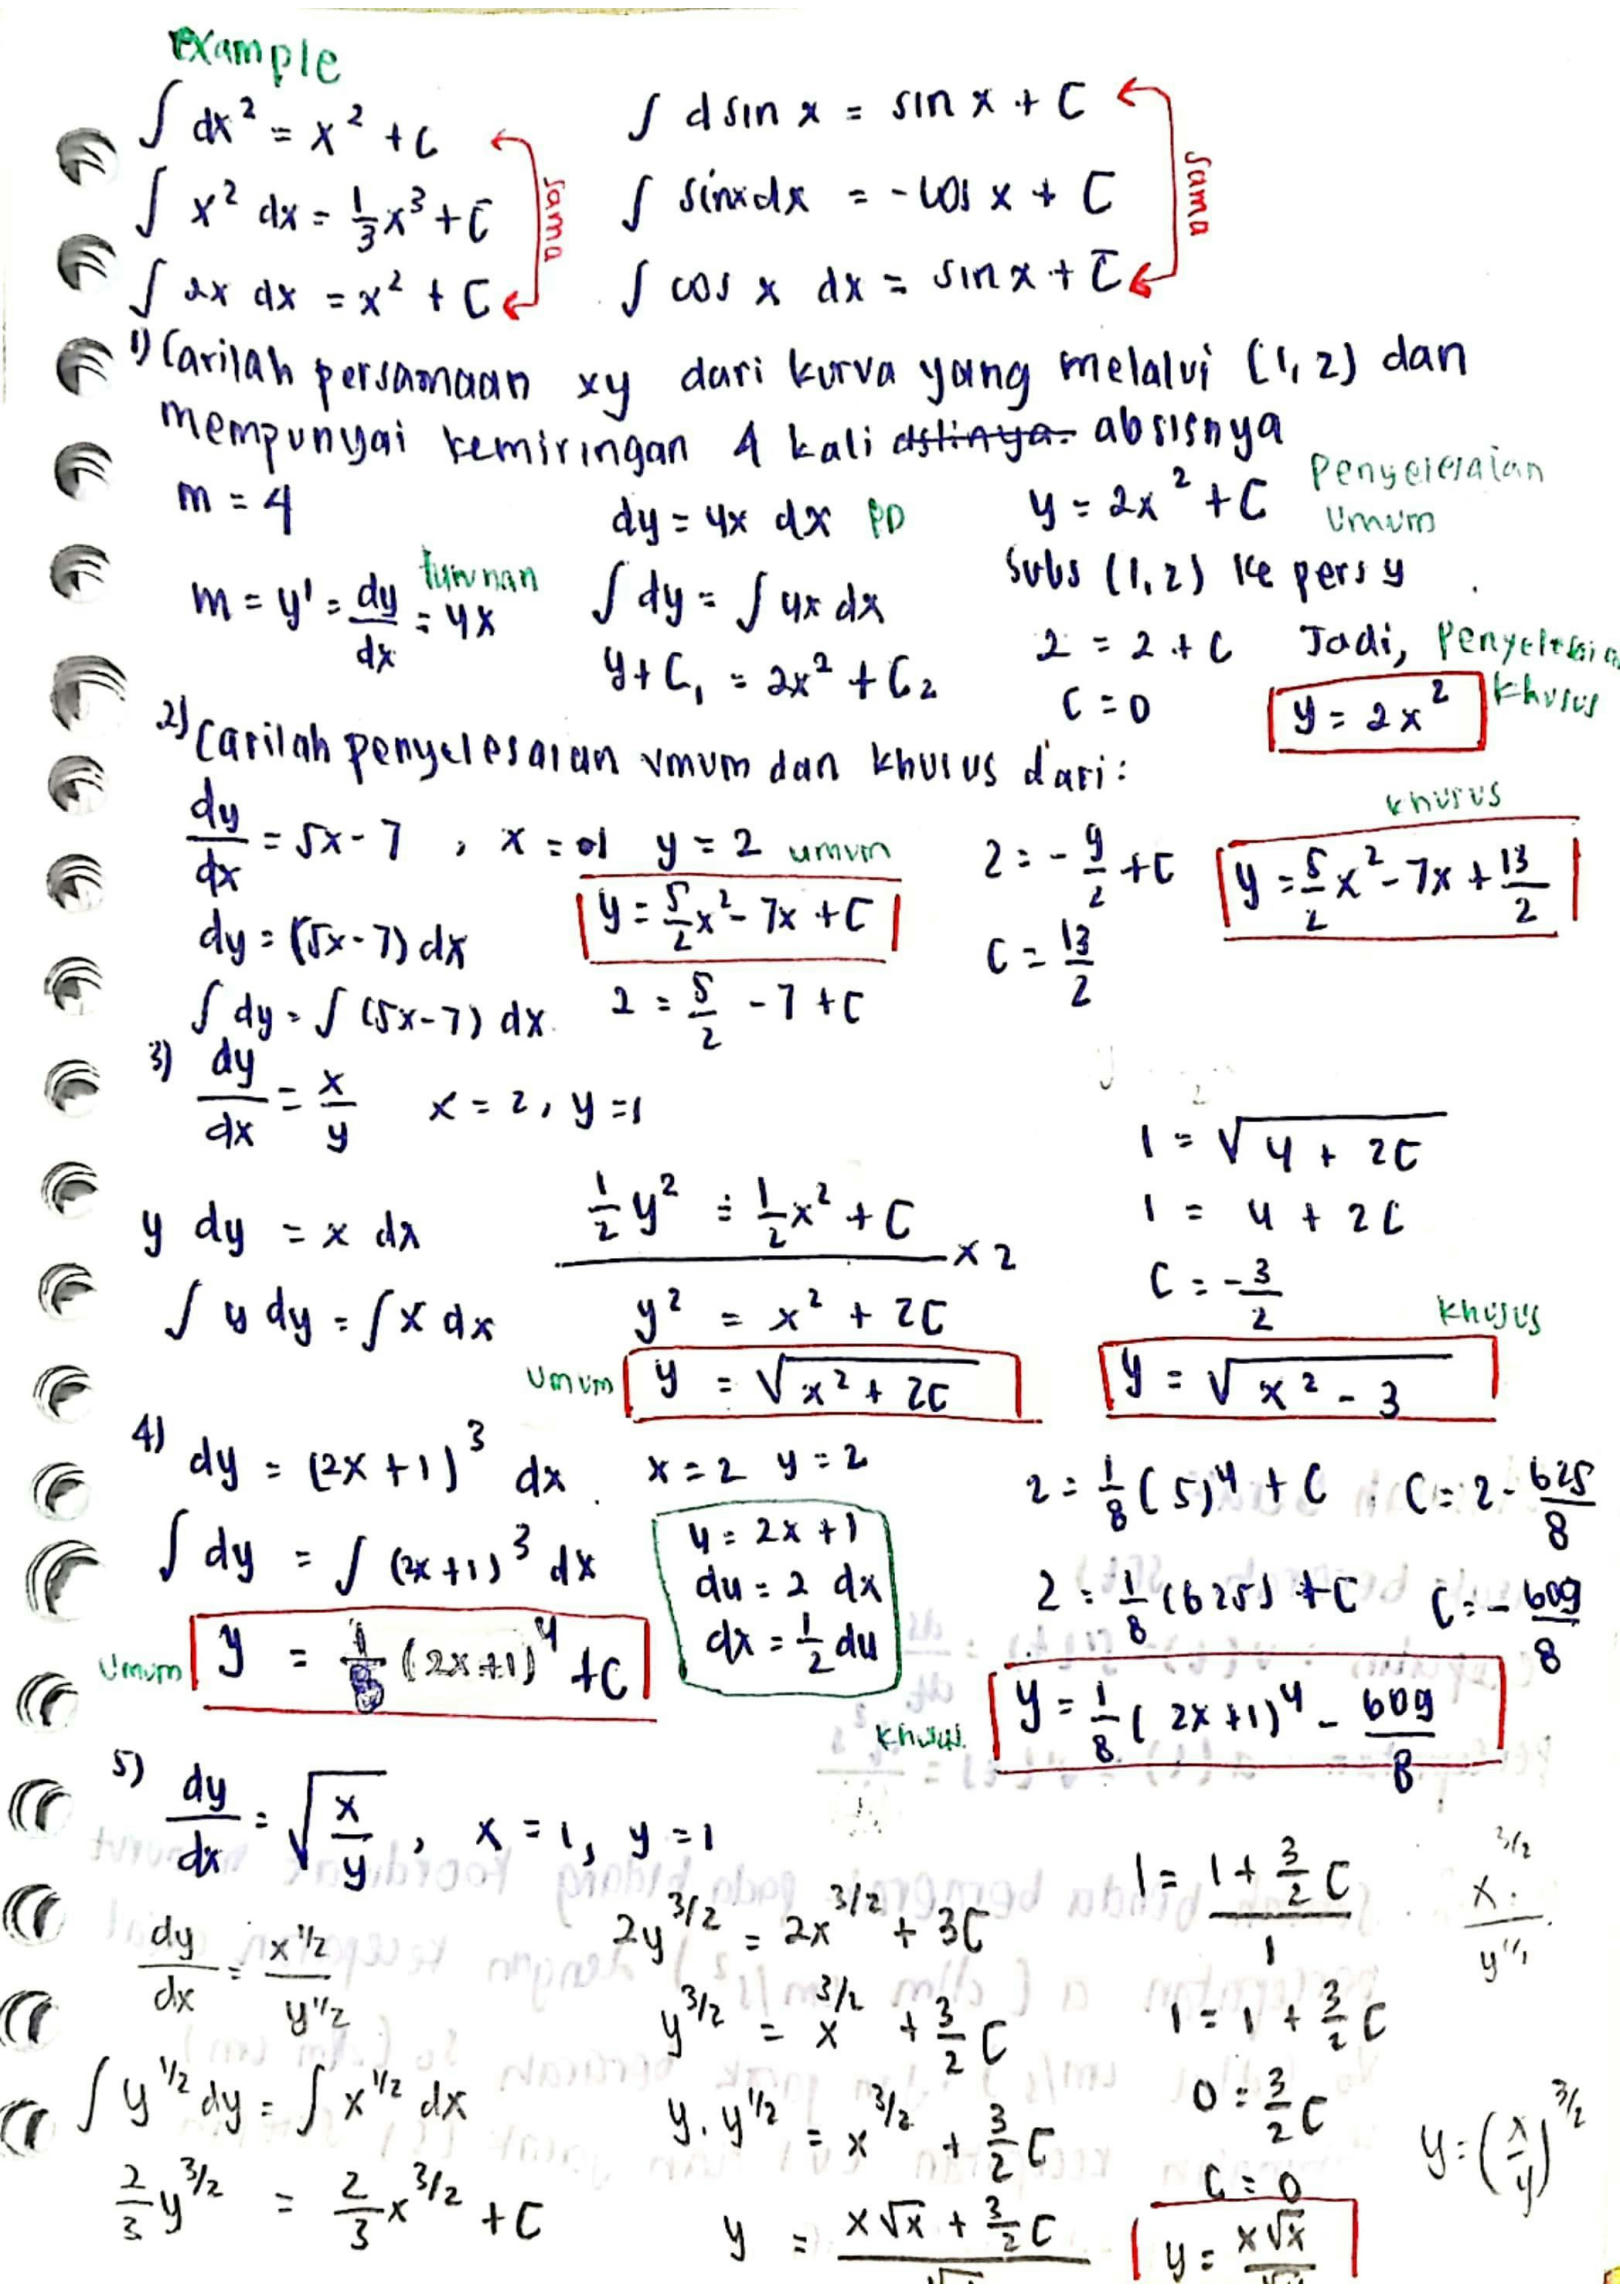 example
∫ dx² = x² + C
∫ x² dx = 1/3 x³ + C
∫ 2x dx = x² + C
sama
∫ d sin x = sin x + C
∫ sin x dx = - cos x + C
∫ cos x dx = sin x + C
sama
1) Carilah persamaan xy dari kurva yang melalui (1,2) dan
mempunyai kemiringan 4 kali absisnya
m = 4
m = y' = dy/dx = 4x turunan
dy = 4x dx PD
∫ dy = ∫ 4x dx
y + C₁ = 2x² + C₂
y = 2x² + C Penyelesaian Umum
Subs (1,2) ke pers y
2 = 2 + C
C = 0
Jadi, Penyelesaian Khusus
y = 2x²
2) Carilah penyelesaian umum dan khusus dari:
dy/dx = 5x - 7 , x = 1 y = 2
dy = (5x - 7) dx
∫ dy = ∫ (5x - 7) dx
umum
y = 5/2 x² - 7x + C
2 = 5/2 - 7 + C
2 = - 9/2 + C
C = 13/2
khusus
y = 5/2 x² - 7x + 13/2
3) dy/dx = x/y x = 2, y = 1
y dy = x dx
∫ y dy = ∫ x dx
1/2 y² = 1/2 x² + C
x 2
y² = x² + 2C
umum y = √(x² + 2C)
1 = √(4 + 2C)
1 = 4 + 2C
C = - 3/2
khusus
y = √(x² - 3)
4) dy = (2x + 1)³ dx x = 2 y = 2
∫ dy = ∫ (2x + 1)³ dx
umum y = 1/8 (2x + 1)⁴ + C
u = 2x + 1
du = 2 dx
dx = 1/2 du
2 = 1/8 (5)⁴ + C
2 = 1/8 (625) + C
C = 2 - 625/8
C = - 609/8
khusus y = 1/8 (2x + 1)⁴ - 609/8
5) dy/dx = √(x/y) , x = 1, y = 1
dy/dx = x^1/2 / y^1/2
∫ y^1/2 dy = ∫ x^1/2 dx
2/3 y^3/2 = 2/3 x^3/2 + C
2y^3/2 = 2x^3/2 + 3C
y^3/2 = x^3/2 + 3/2 C
y . y^1/2 = x^3/2 + 3/2 C
y = x√x + 3/2 C
1 = (1 + 3/2 C)/1
1 = 1 + 3/2 C
0 = 3/2 C
C = 0
y = x√x
y = (x/y)^3/2